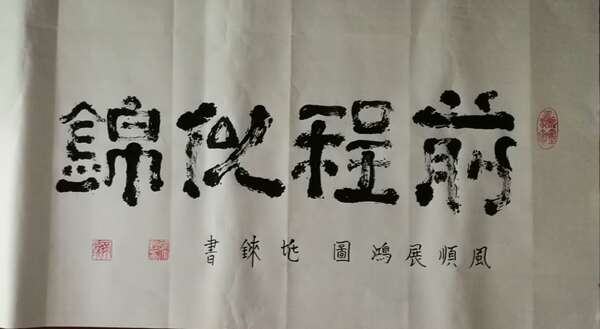 前程似錦
風順展鴻圖 書